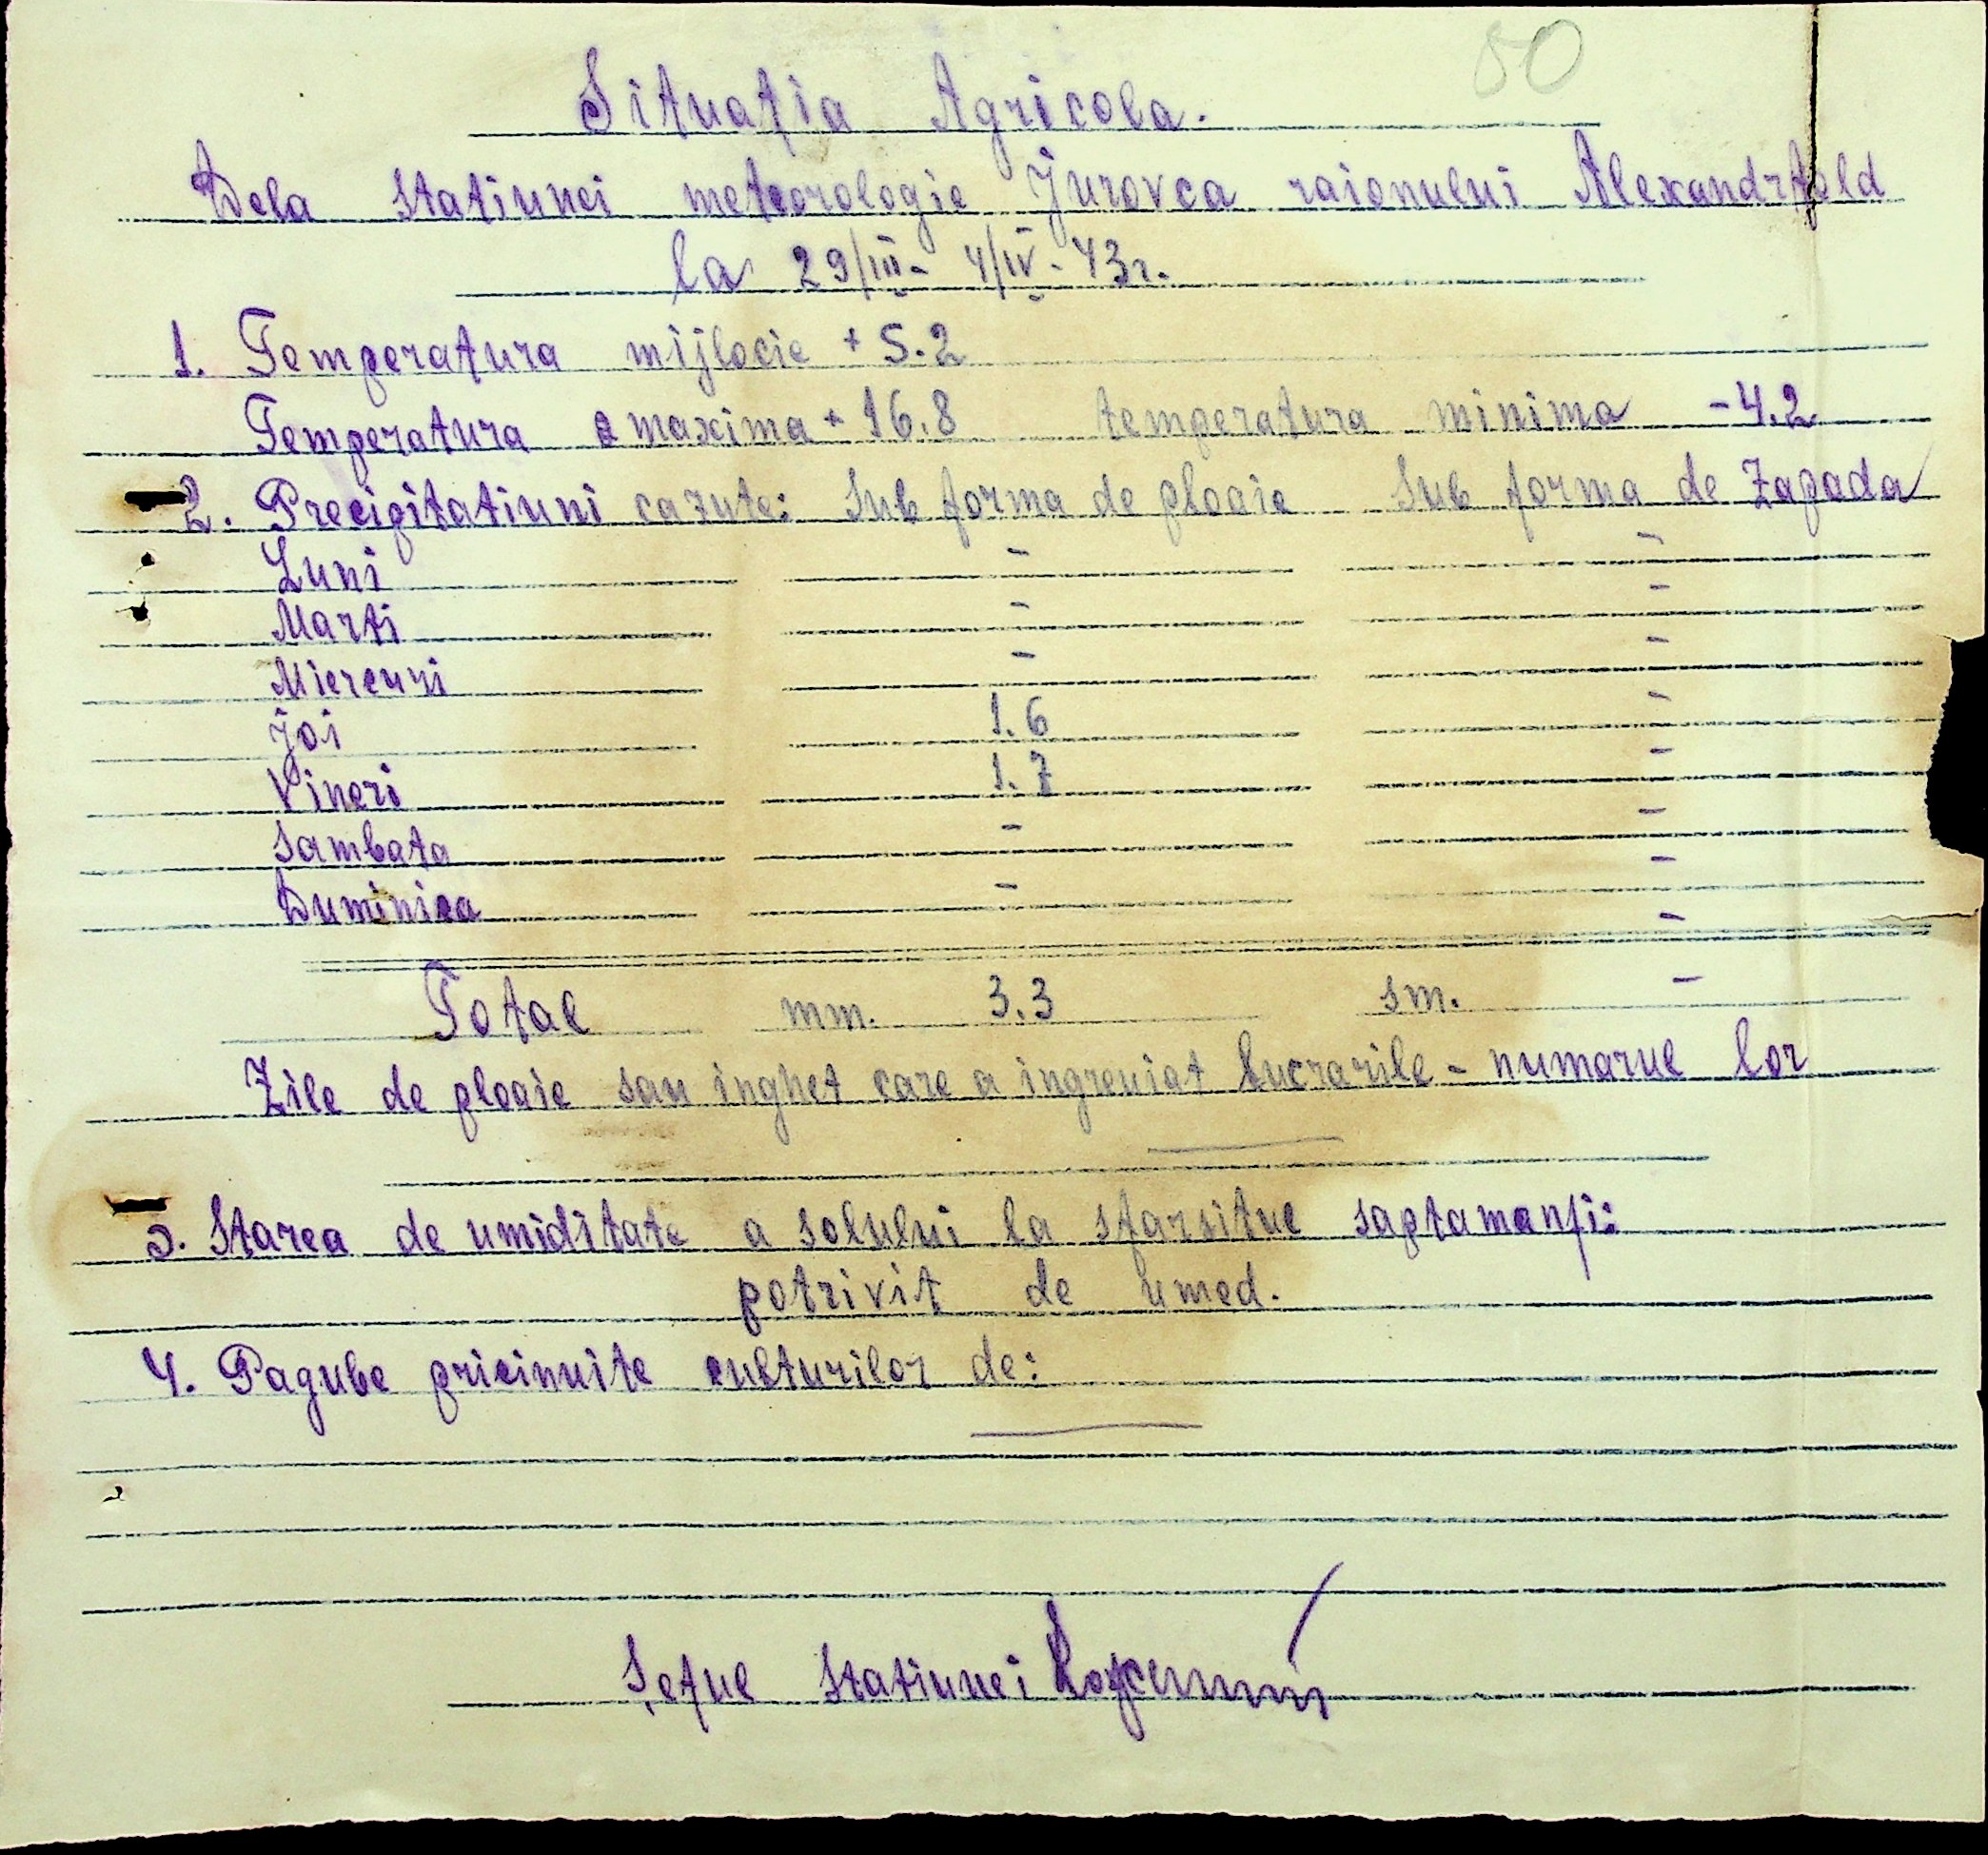 50
Situatia Agricola.
Dela statiunei meteorologie Jurovca raionului Alexandrfeld
la 29/III - 4/IV - 43 r.
1. Temperatura mijlocie + 5.2
Temperatura a maxima + 16.8 temperatura minima - 4.2
2. Precipitatiuni cazute: Sub forma de ploaie Sub forma de Zapada
Luni - -
Marti - -
Miercuri - -
Joi 1.6 -
Vineri 1.7 -
Sambata - -
Duminica - -
Total mm. 3.3 sm. -
Zile de ploaie sau inghet care a ingreuiat lucrarile - numarul lor
3. Starea de umiditate a solului la sfarsitul saptamanii:
potrivit de umed.
4. Pagube pricinuite culturilor de:
Șeful Statiunei